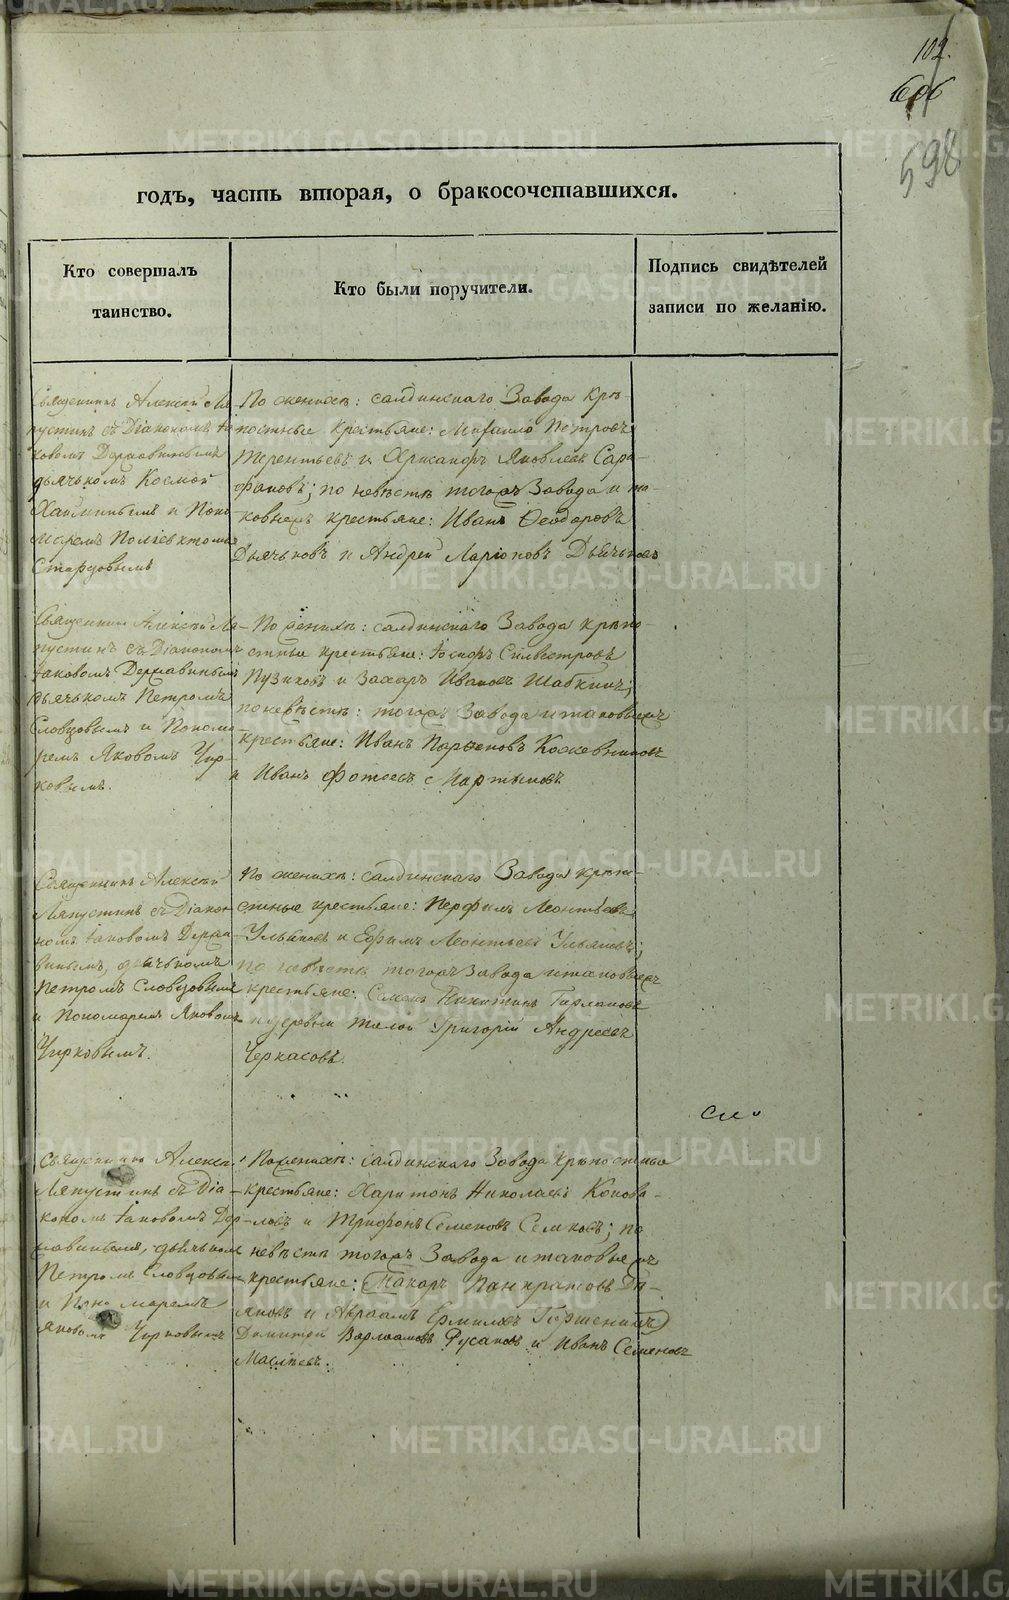 102.
606
598
годъ, часть вторая, о бракосочетавшихся.
Кто совершалъ
таинство.
Кто были поручители.
Подпись свидѣтелей
записи по желанію.
Священникъ Алексѣй Ля-
пустинъ съ Діакономъ Іа-
ковомъ Державинымъ
дьячькомъ Космой
и Поно-
маремъ Поліевктомъ
Старцовымъ
По женихѣ: салдинскаго Завода крѣ-
постные крестьяне: Михайло Петровъ
Терентьевъ и Хрисанфъ Яковлевъ Сара-
фановъ; по невѣстѣ тогожъ Завода и та-
ковыежъ крестьяне: Иванъ Феодоровъ
Дьячьковъ и Андрей Ларіоновъ Дьячьковъ
Священникъ Алексѣй Ля-
пустинъ съ Діакономъ
Іаковомъ Державинымъ
дьячькомъ Петромъ
Словцовымъ и Понома-
ремъ Яковомъ Чир-
ковымъ.
По женихѣ: салдинскаго Завода крѣпо-
стные крестьяне: Іосифъ Сильвестровъ
Пузиковъ и Захаръ Ивановъ Шабкинъ;
по невѣстѣ: тогожъ Завода и таковыежъ
крестьяне: Иванъ Парѳеновъ
и Иванъ Фотеевъ
Священникъ Алексѣй
Ляпустинъ съ Діако-
номъ Іаковомъ Держа-
винымъ, дьячькомъ
Петромъ Словцовымъ
и Пономаремъ Яковомъ
Чирковымъ.
По женихѣ: салдинскаго Завода крѣпо-
стные крестьяне: Перфилъ Леонтьевъ
Ульяновъ и Ефимъ Леонтьевъ Ульяновъ;
по невѣстѣ тогожъ Завода и таковыежъ
крестьяне: Семенъ Никитинъ
и деревни Григорій Андреевъ
Черкасовъ.
Священникъ Алексѣй
Ляпустинъ съ Діа-
кономъ Іаковомъ Дер-
жавинымъ, дьячькомъ
Петромъ Словцовымъ
и Пономаремъ
Яковомъ Чирковымъ
По женихѣ: салдинскаго Завода крѣпостные
крестьяне: Харитонъ Николаевъ Конова-
ловъ и Трифонъ Семеновъ Семковъ; по
невѣстѣ тогожъ Завода и таковыежъ
крестьяне: Макаръ Панкратовъ
и Авраамъ Ермилаевъ Горшенинъ
Димитрій Варламовъ Русаковъ и Иванъ Семеновъ
METRIKI.GASO-URAL.RU